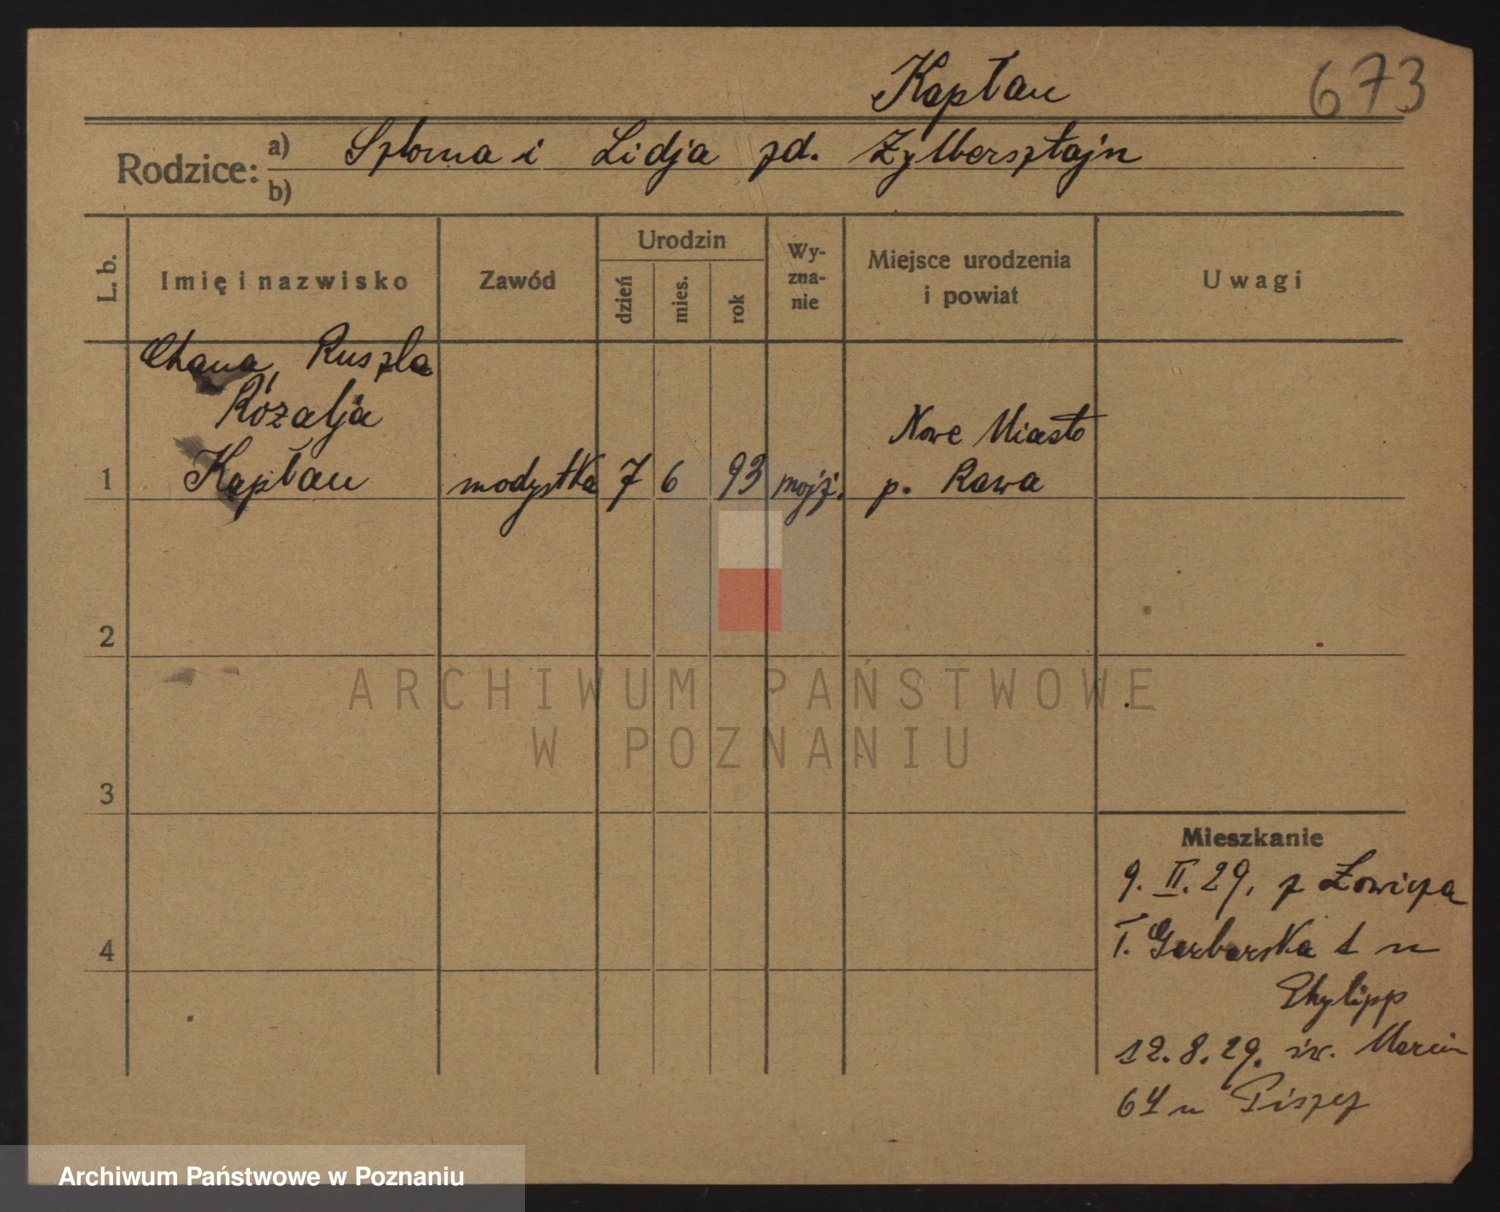 Kapłan
673
Rodzice:
a) Szloma i Lidja zd. Zylbersztajn
b)
L. b.
Imię i nazwisko
Zawód
Urodzin
dzień
mies.
rok
Wy-
zna-
nie
Miejsce urodzenia
i powiat
Uwagi
Chana Ruszla
Rózalja
1 Kapłan modystka 7 6 93 mojż. Nowe Miasto
p. Rawa
2
3
4
ARCHIWUM PAŃSTWOWE
W POZNANIU
Mieszkanie
9. II. 29. z Łowicza
T. Garbarska 1 u
Phylipp
12. 8. 29. św. Marcin
64 u
Archiwum Państwowe w Poznaniu